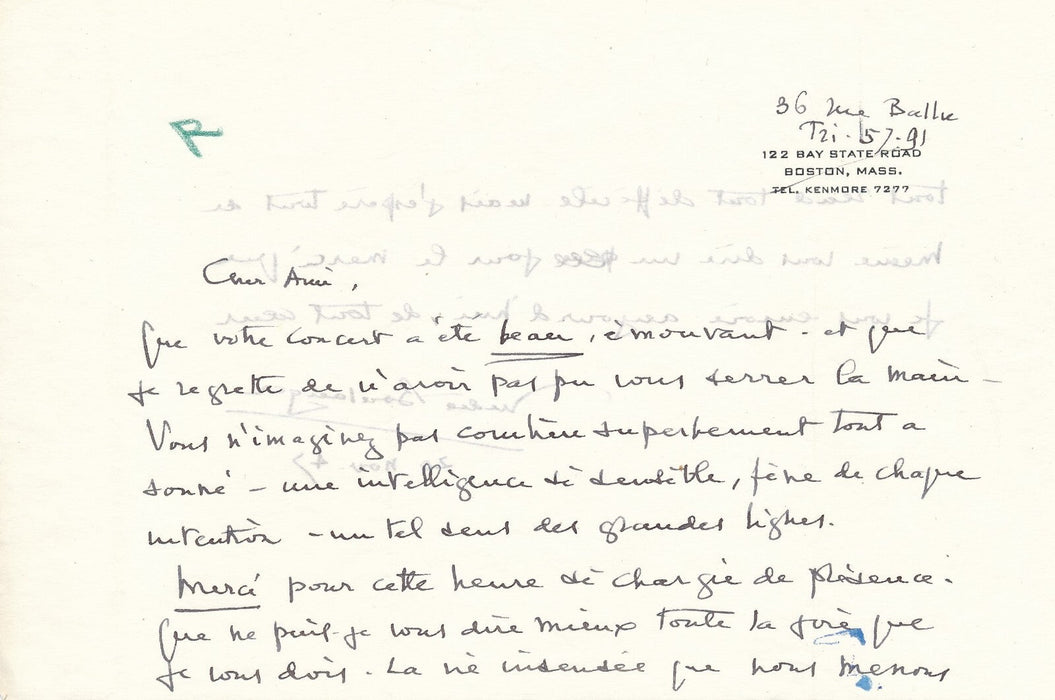 R
36 rue Ballu
Tri. 57-91
122 BAY STATE ROAD
BOSTON, MASS.
TEL. KENMORE 7277
Cher Ami,
Que votre concert a été beau, émouvant - et que
je regrette de n'avoir pas pu vous serrer la main -
Vous n'imaginez pas combien superbement tout a
sonné - une intelligence si sensible, fine de chaque
intention - un tel sens des grandes lignes.
Merci pour cette heure si chargée de présence.
Que ne puis-je vous dire mieux toute la joie que
je vous dois. La vie insensée que nous menons